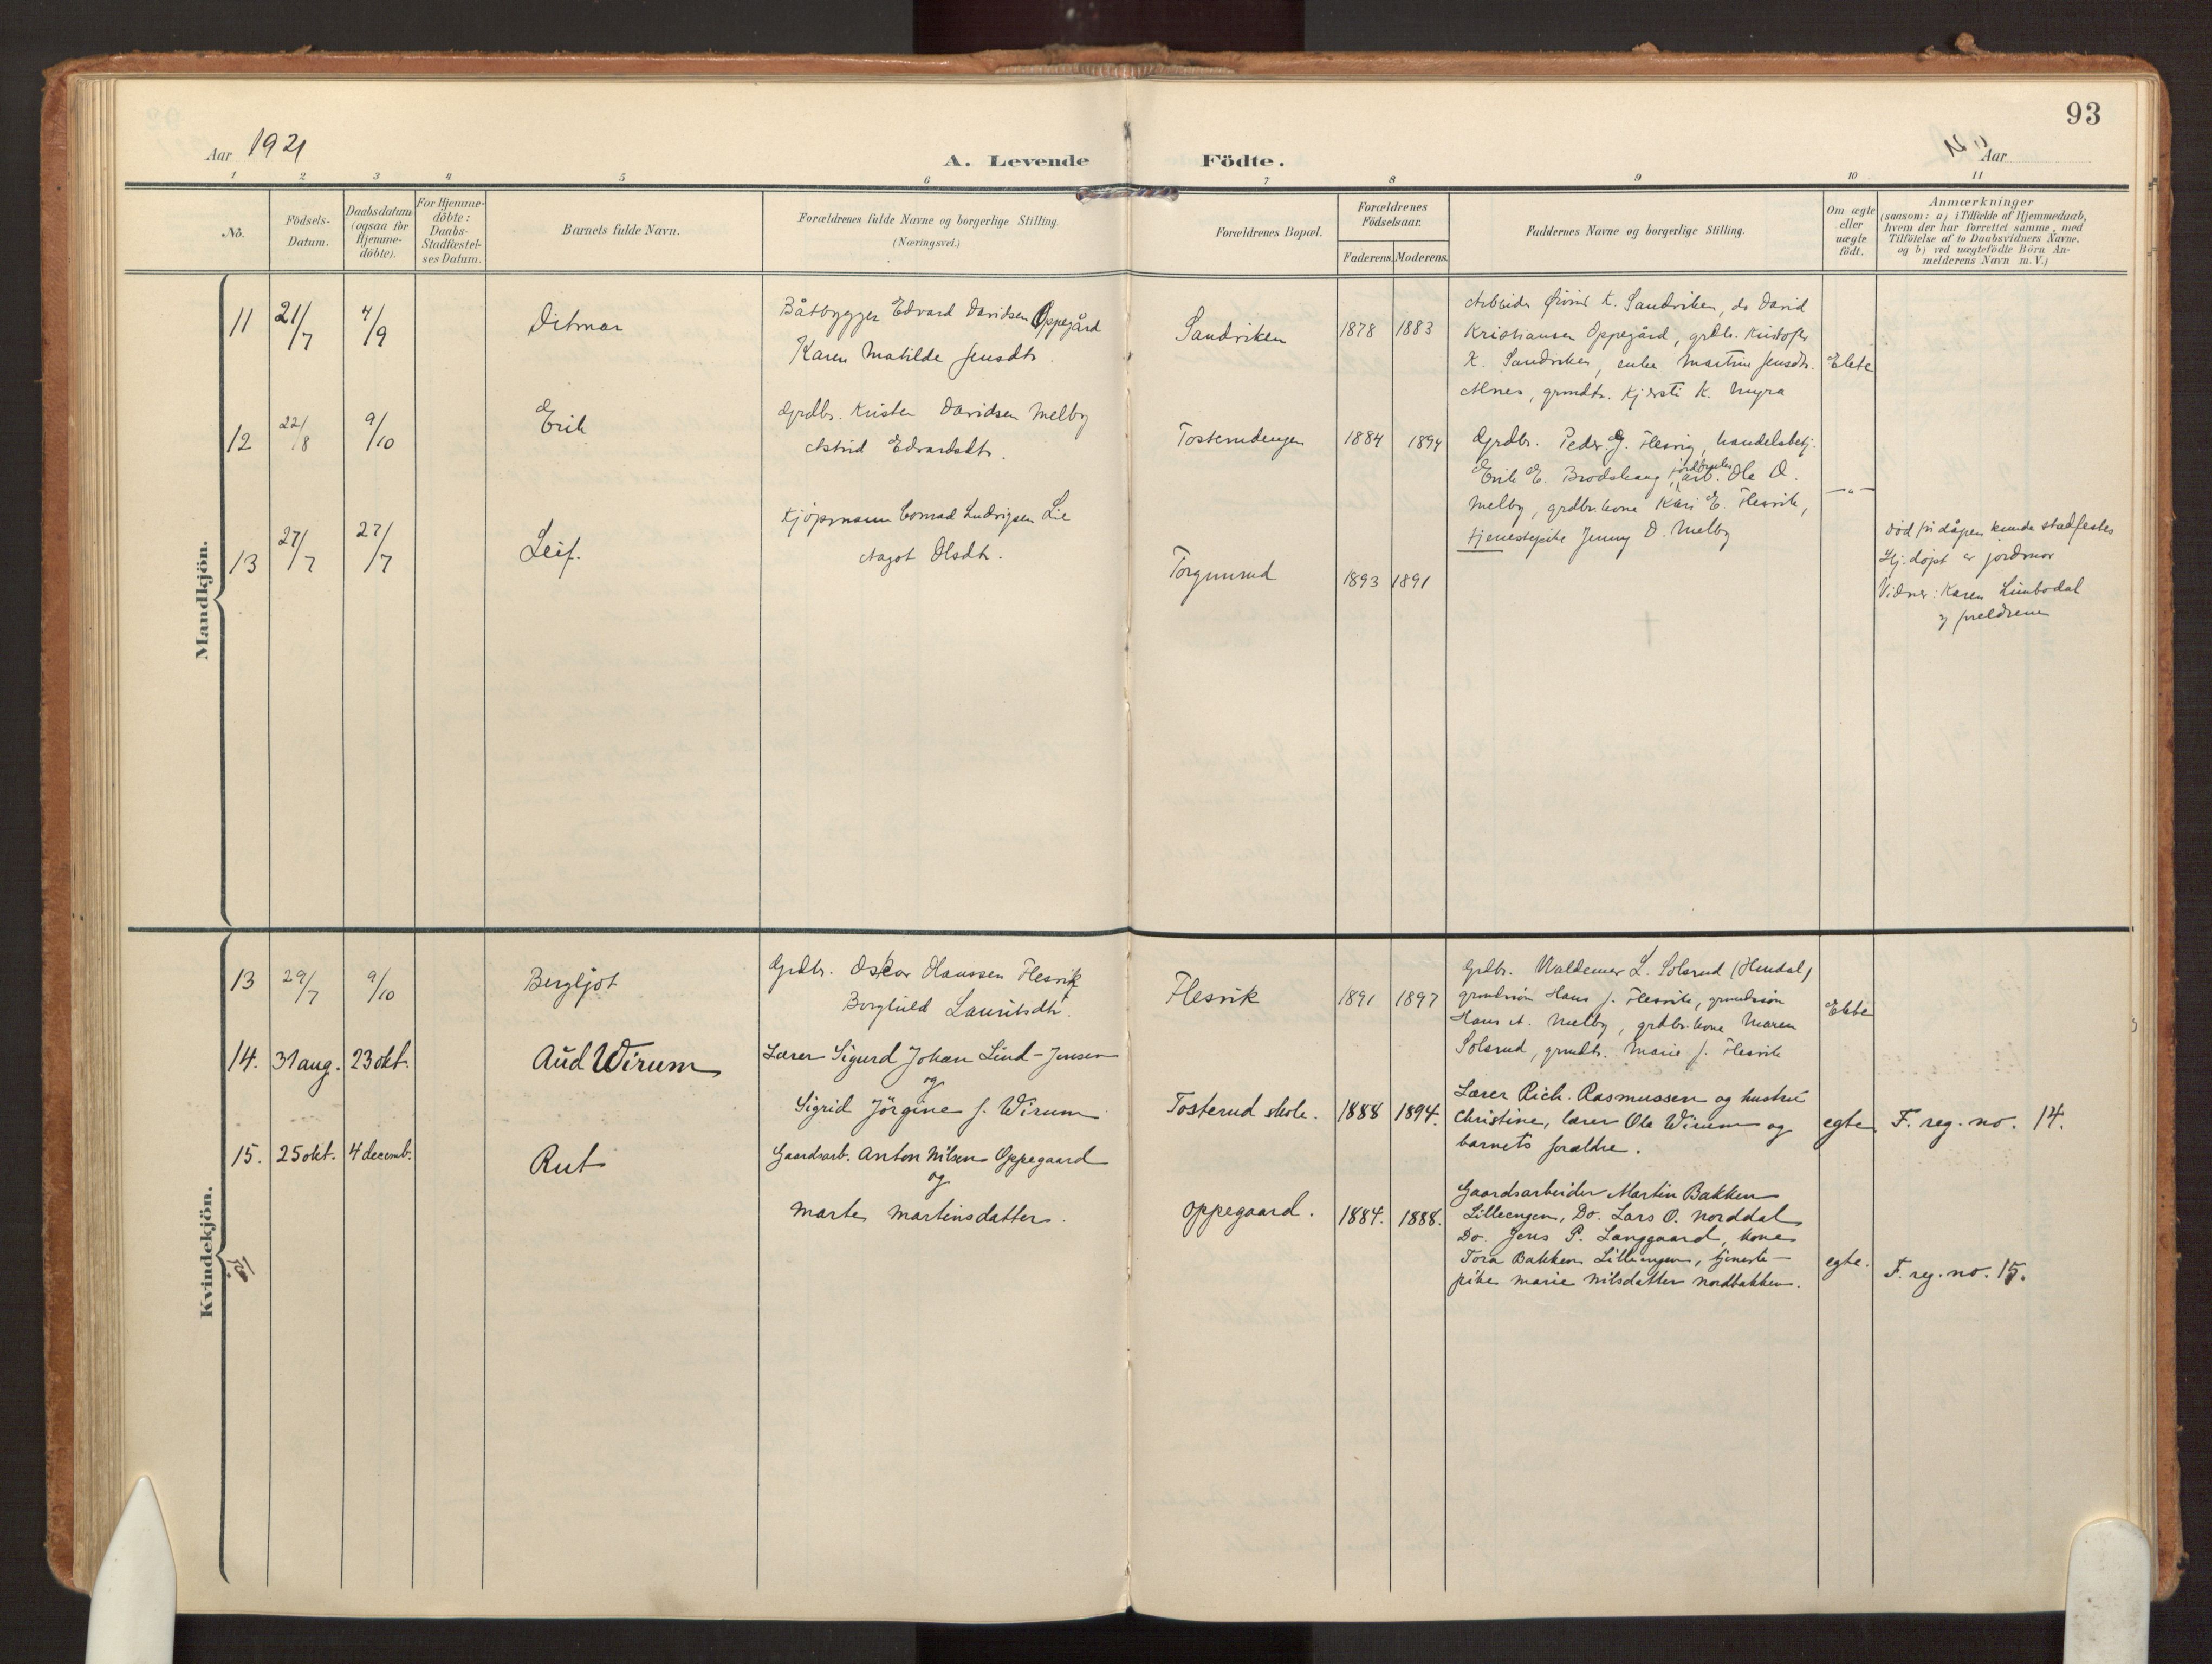 93
Aar 1921
A. Levende Födte.
Aar
1 2 3 4 5 6 7 8 9 10 11
No.
Födsels-
Datum.
Daabsdatum
(ogsaa for
Hjemme-
döbte).
For Hjemme-
döbte:
Daabs-
Stadfæstel-
ses Datum.
Barnets fulde Navn.
Forældrenes fulde Navne og borgerlige Stilling.
(Næringsvei.)
Forældrenes Bopæl.
Forældrenes
Födselsaar.
Faderens. Moderens.
Faddernes Navne og borgerlige Stilling.
Om ægte
eller
uægte
födt.
Anmærkninger
(saasom: a) i Tilfælde af Hjemmedaab,
hvem der har forrettet samme, med
Tilföielse af to Daabsvidners Navne,
og b) ved uægtefödte Börn An-
melderens Navn m. V.)
Mandkjön.
11 21/7 4/9 Ditmar
Båtbygger Edvard Davidsen Oppegård
Karen Matilde Jensdtr.
Sandviken 1878 1883
Arbeider Øivind K. Sandviken, do David
Kristiansen Oppegård, grdbr. Kristofer
K. Sandviken, enke Martine Jensdtr.
Alnes, grmdtr. Kjersti K. Myra
Ekte
12 22/8 9/10 Erik
Grdbr. Kristen Davidsen Melby
Astrid Edvardsdtr.
Tosterudengen 1884 1894
Grdbr. Peder G. Flesvig, handelsbetj.
Erik E. Brodshaug, jordbruks
arb. Ole D.
Melby, grdbr.kone Kari E. Flesvik,
tjenestepike Jenny D. Melby
—"—
13 27/7 27/7 Leif.
Kjøpmann Conrad Ludvigsen Lie
Nagot Olsdtr.
Torgunrud 1893 1891
Død før dåpen kunde stadfestes
Hj. døpt av jordmor
Vidner: Karen Limbodal
og foreldrene
Kvindekjön.
13 29/7 9/10 Bergljot
Grdbr. Oskar Hanssen Flesvik
Borghild Lauritsdtr.
Flesvik 1891 1897
Grdbr. Waldemar L. Solsrud (Hendal)
grmdssøn Hans J. Flesvik, grmdssøn
Hans A. Melby, grdbr.kone Maren
Solsrud, grmdtr. Marie J. Flesvik
Ekte
14. 31 aug. 23 okt. Aud Wirum
Lærer Sigurd Johan Lind-Jensen
og
Sigrid Jörgine f. Wirum
Tosterud skole. 1888 1894.
Lærer Rich. Rasmussen og hustru
Christine, lærer Ole Wirum og
barnets forældre.
egte F. reg. no. 14.
15. 25 okt. 4 decemb. Rut
Gaardsarb. Anton Nilsen Oppegaard
og
Marte Martinsdatter.
Oppegaard. 1884. 1888.
Gaardsarbeider Martin Bakken
Lilleengen, Do. Lars O. Norddal
Do. Jens P. Langgaard, kone
Tora Bakken Lilleengen, tjeneste-
pike Marie Nilsdatter Nordbakken.
egte. F. reg. no. 15.